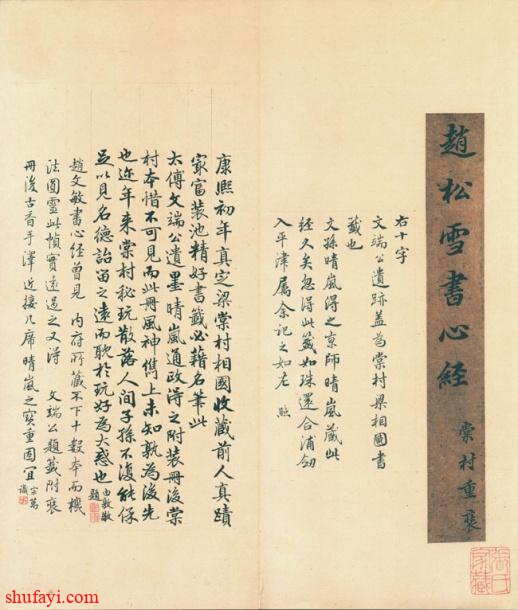 趙松雪書心經
棠村重裝
右十字
文端公遺跡蓋為棠村梁相國書
籤也
文孫晴嵐得之京師晴嵐藏此
經久矣忽得此籤如珠還合浦劒
入平津屬余記之如左 照
張氏家藏
康熙初年真定梁棠村相國收藏前人真蹟
㝡富裝池精好書籤必藉名筆此
太傅文端公遺墨晴嵐通政得之附裝冊後棠
村本惜不可見而此冊風神儁上未知孰為後先
也近年来棠村秘玩散落人間子孫不復能保
足以見名德詒留之遠而耽於玩好為大惑也
由敦敬
題
趙文敏書心經曾見 内府所藏不下十數本而機
法圓靈此幀實遠過之又得 文端公題籤附裝
冊後古香手澤近接几席晴嵐之寶重固宜
宗萬
識
shufayi.com